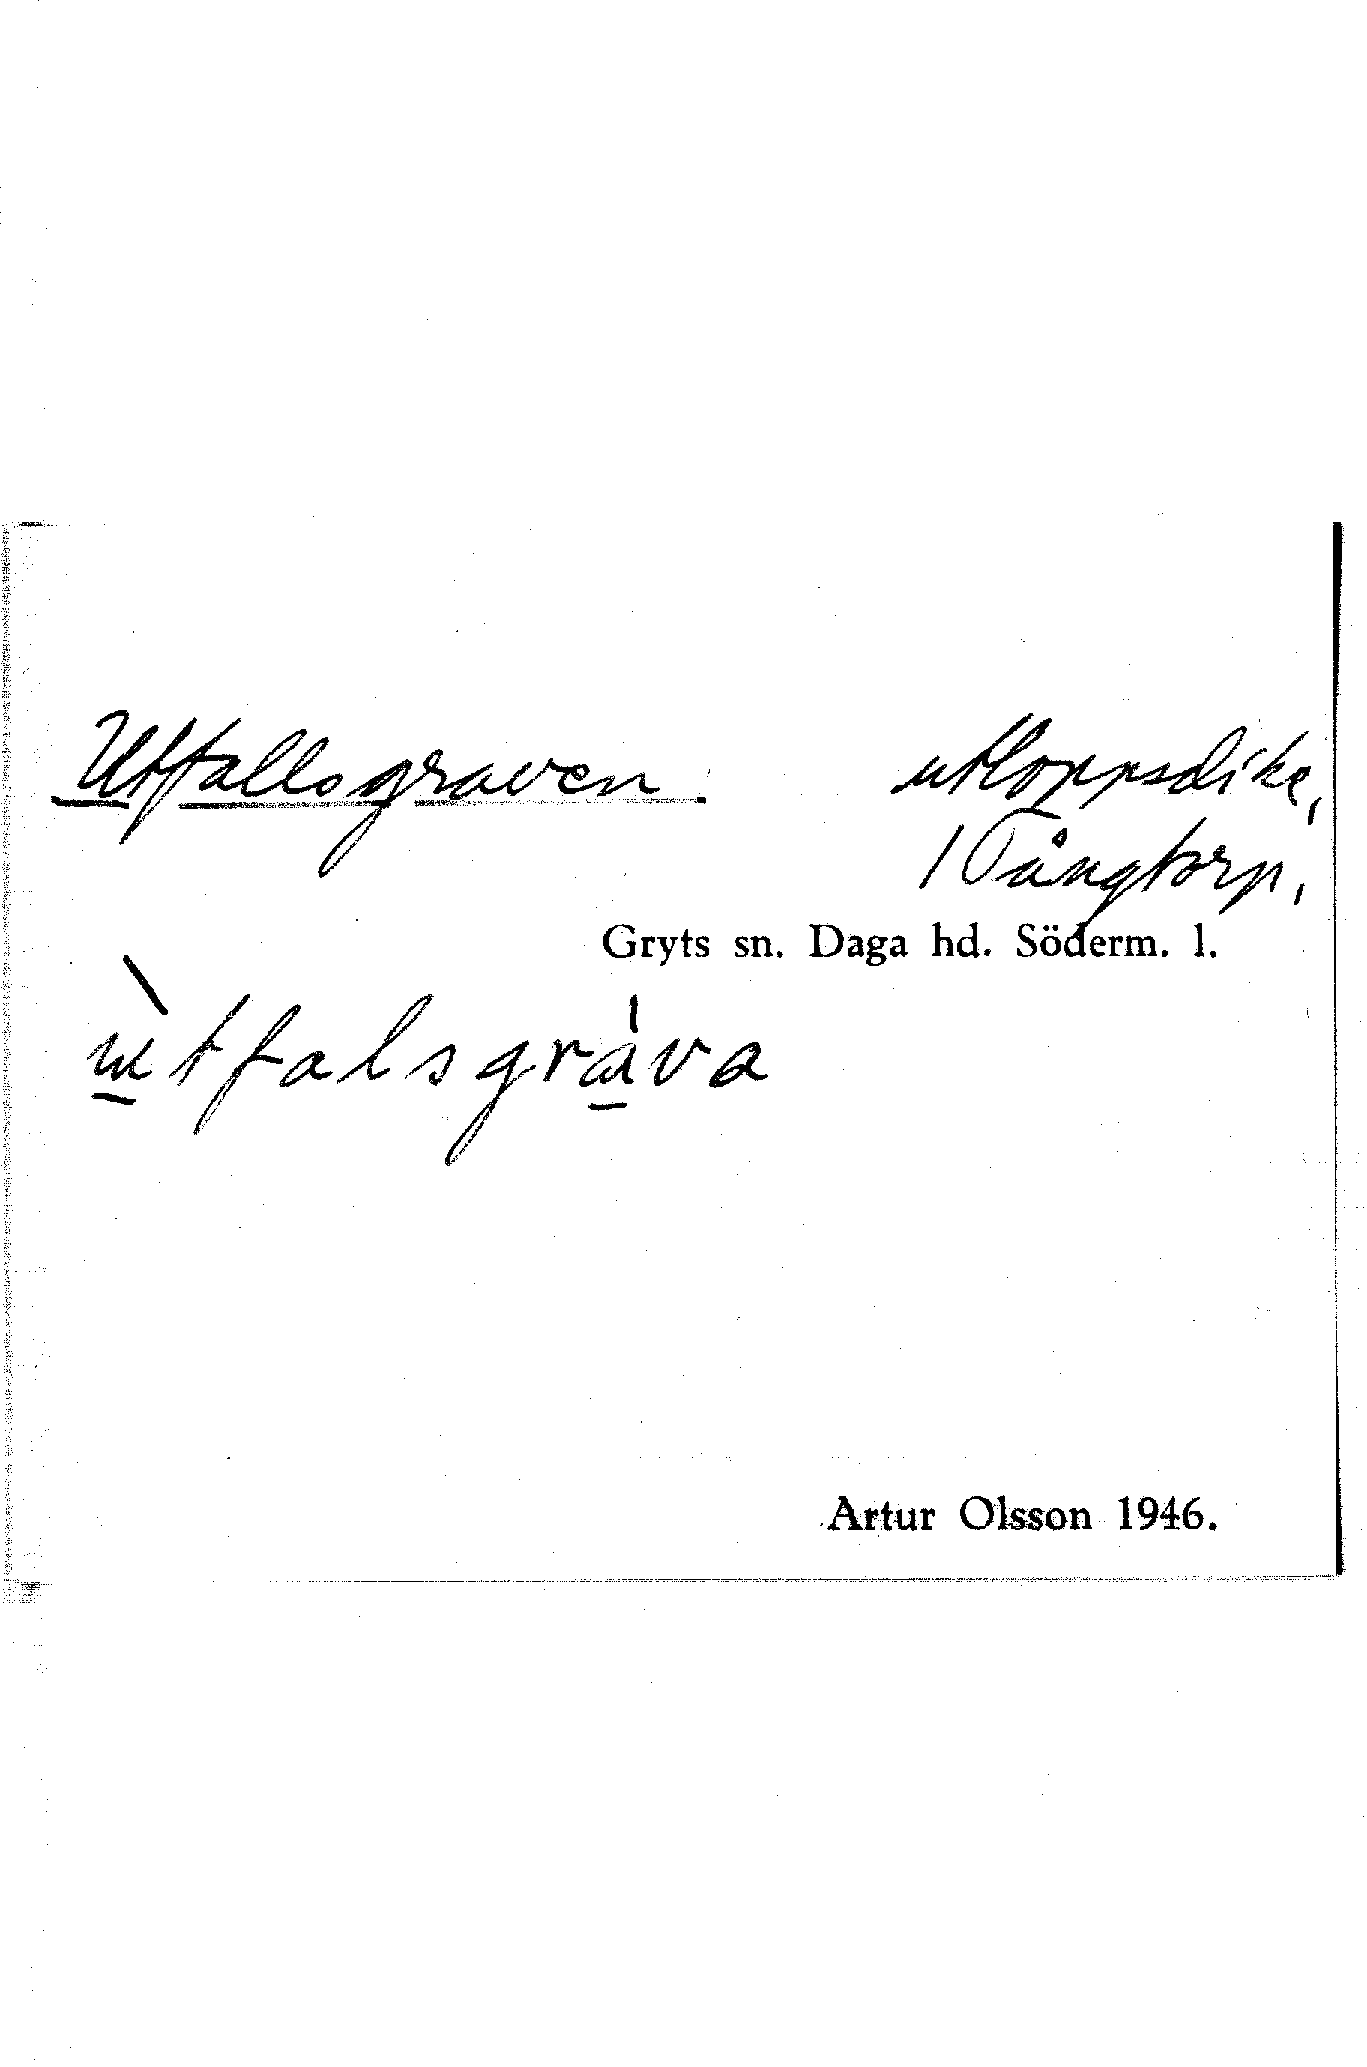 Utfallsgraven. utloppsdike,
/ Tångtorp,
Gryts sn. Daga hd. Söderm. l.
ùtfalsgráva
Artur Olsson 1946.